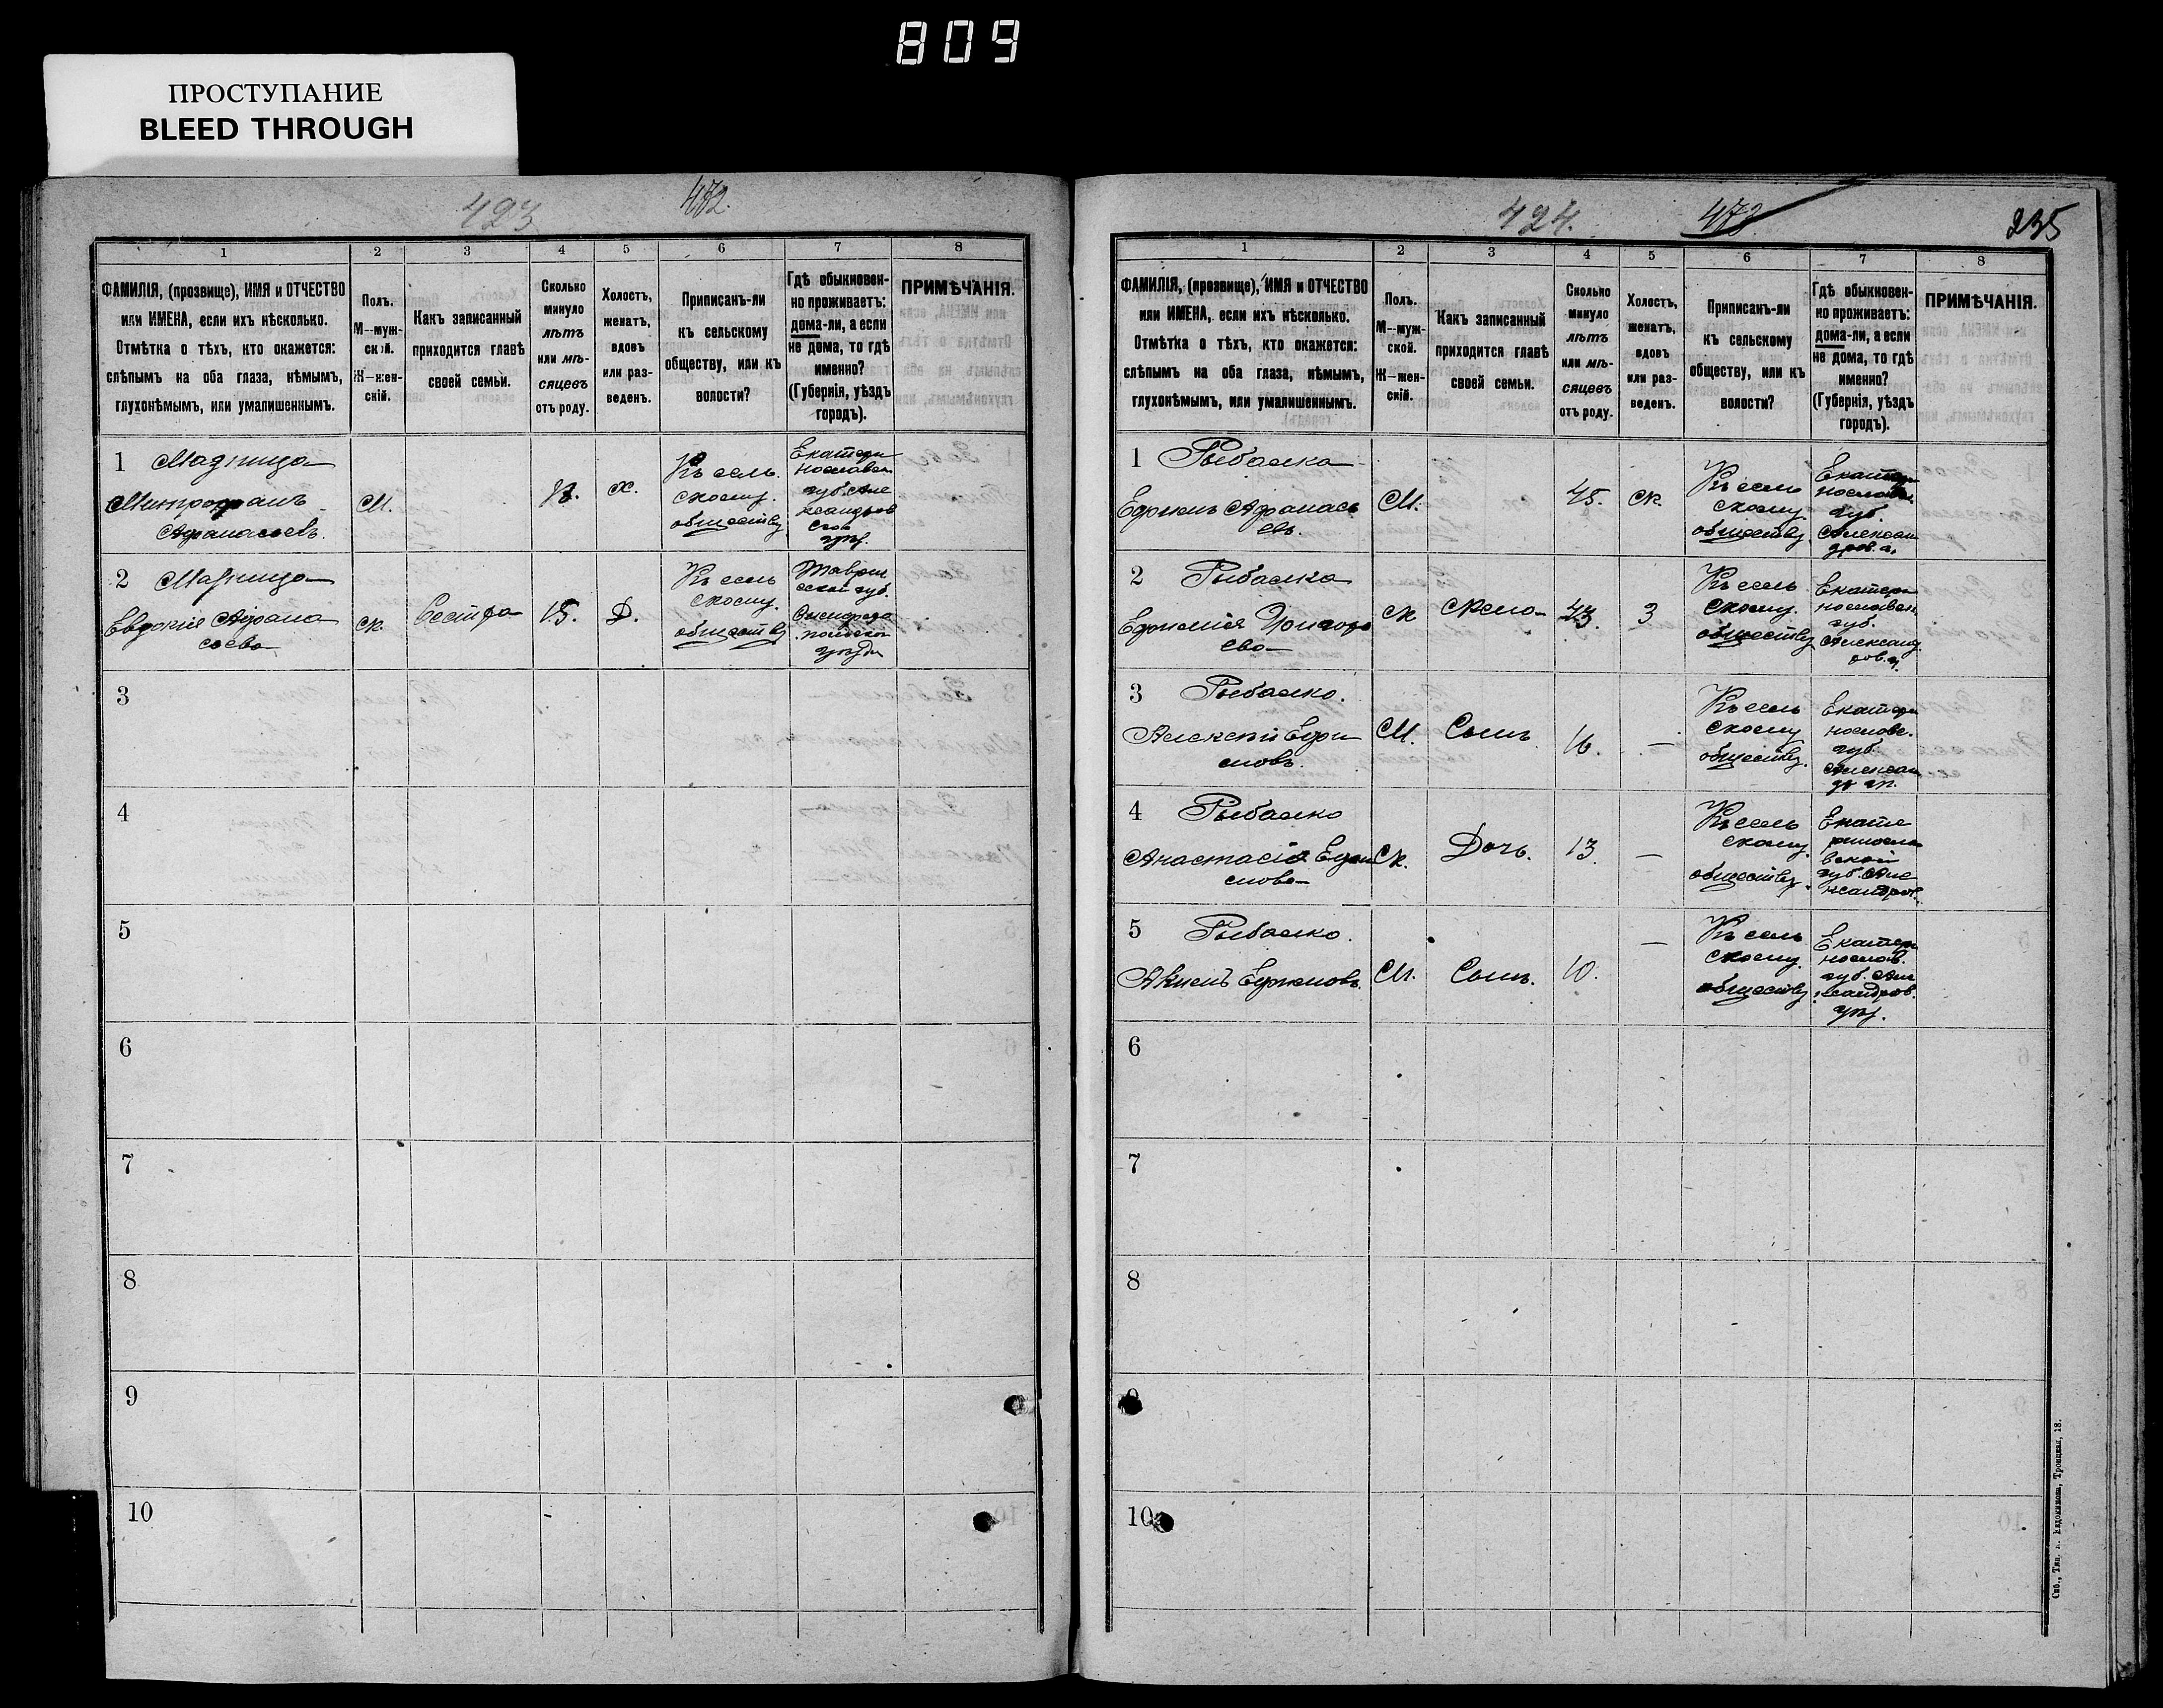 809
ПРОСТУПАНИЕ
BLEED THROUGH
423
472.
1
2
3
4
5
6
7
8
ФАМИЛІЯ, (прозвище), ИМЯ и ОТЧЕСТВО
или ИМЕНА, если ихъ нѣсколько.
Отмѣтка о тѣхъ, кто окажется:
слѣпымъ на оба глаза, нѣмымъ,
глухонѣмымъ, или умалишеннымъ.
Полъ.
М—муж-
ской.
Ж—жен-
скій.
Какъ записанный
приходится главѣ
своей семьи.
Сколько
минуло
лѣтъ
или мѣ-
сяцевъ
отъ роду.
Холостъ,
женатъ,
вдовъ
или раз-
веденъ.
Приписанъ-ли
къ сельскому
обществу, или къ
волости?
Гдѣ обыкновен-
но проживаетъ:
дома-ли, а если
не дома, то гдѣ
именно?
(Губернія, уѣздъ
городъ).
ПРИМѢЧАНІЯ.
1
Митрофанъ
Афанасьевъ.
М.
Х.
Къ сель
скому.
обществу
Екатери
нославск
губ. Але
ксандров
ской
уѣз.
2
Евдокія Афана
сьева
Ж.
Сестра
15.
Д.
Къ сель
скому.
обществу
Таври
ческой губ.
уѣзда
3
4
5
6
7
8
9
10
424.
473
235
1
2
3
4
5
6
7
8
ФАМИЛІЯ, (прозвище), ИМЯ и ОТЧЕСТВО
или ИМЕНА, если ихъ нѣсколько.
Отмѣтка о тѣхъ, кто окажется:
слѣпымъ на оба глаза, нѣмымъ,
глухонѣмымъ, или умалишеннымъ.
Полъ.
М—муж-
ской.
Ж—жен-
скій.
Какъ записанный
приходится главѣ
своей семьи.
Сколько
минуло
лѣтъ
или мѣ-
сяцевъ
отъ роду.
Холостъ,
женатъ,
вдовъ
или раз-
веденъ.
Приписанъ-ли
къ сельскому
обществу, или къ
волости?
Гдѣ обыкновен-
но проживаетъ:
дома-ли, а если
не дома, то гдѣ
именно?
(Губернія, уѣздъ
городъ).
ПРИМѢЧАНІЯ.
1 Рыбалка
Ефимъ Афанась
евъ.
М.
45.
Ж.
Къ сель
скому
обществу
Екатери
нослав.
губ.
Алексан
дров. у.
2 Рыбалка
Ефимія Григорь
ева
Ж
Жена
43.
З
Къ сель
скому.
обществу
Екатери
нославск
губ.
Александ
ров. у.
3 Рыбалко.
Алексѣй Ефи
мовъ.
М.
Сынъ
16.
—
Къ сель
скому
обществу.
Екатери
нослав.
губ.
Алексан
др уѣ.
4 Рыбалко
Анастасія Ефи
мова
Ж.
Дочь.
13.
—
Къ сель
скому
обществу.
Екате
риносла
вской
губ. Але
ксандров.
5 Рыбалко.
Акимъ Ефимовъ.
М.
Сынъ.
10.
—
Къ сель
скому.
обществу
Екатери
нослав.
губ. Але
ксандров.
уѣз.
6
7
8
9
10
Спб., Тип. Евдокимова, Троицкая, 18.